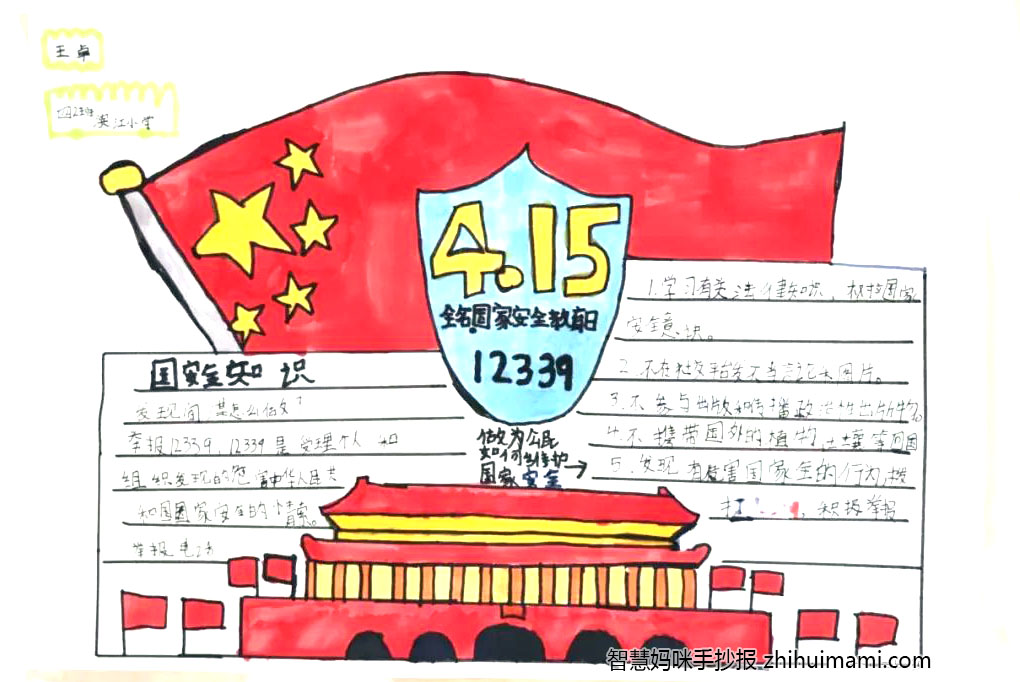 王卓
四2班
小学
4.15
全名国家安全教育日
12339
国安全知识
举报12339，12339是受理个人
组织发现的 中华人民共
和国国家安全的情索。
举报电话
做为公民
如何维护
国家安全
1.学习有关法律知识，
安全意识。
2.不在 平台发不当言论和图片。
3.不参与出版和传播政治性出版物。
4.不携带国外的植物，土壤等回国
5.发现有危害国家全的行为，拨
打 ，积极举报
智慧妈咪手抄报 zhihuimami.com